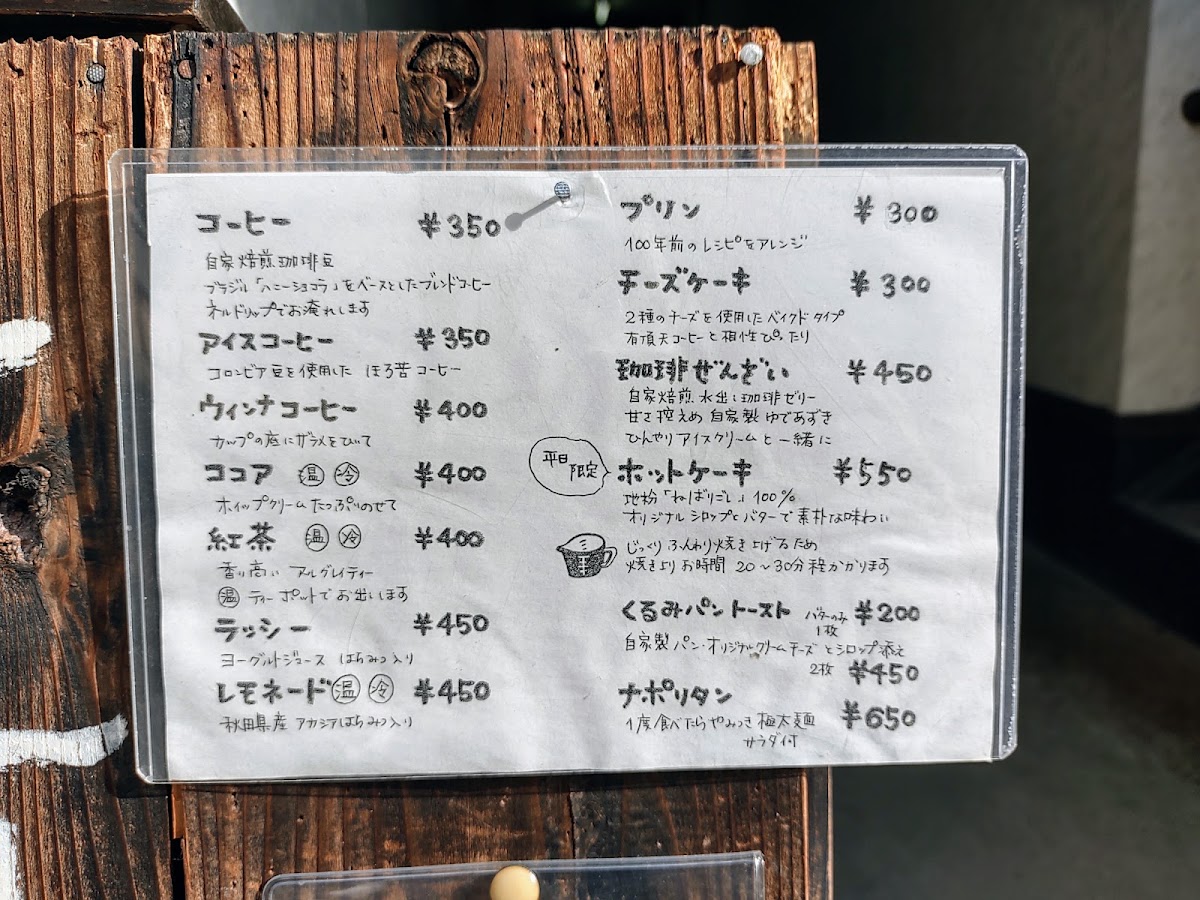 コーヒー ¥350
自家焙煎珈琲豆
ブラジル「ハニーショコラ」をベースとしたブレンドコーヒー
ネルドリップでお淹れします
アイスコーヒー ¥350
コロンビア豆を使用した ほろ苦コーヒー
ウィンナコーヒー ¥400
カップの底にザラメをひいて
ココア 温 冷 ¥400
ホイップクリームたっぷりのせて
紅茶 温 冷 ¥400
香り高い アールグレイティー
温 ティーポットでお出しします
ラッシー ¥450
ヨーグルトジュース はちみつ入り
レモネード 温 冷 ¥450
秋田県産 アカシアはちみつ入り
プリン ¥300
100年前のレシピをアレンジ
チーズケーキ ¥300
2種のチーズを使用したベイクドタイプ
有頂天コーヒーと相性ぴったり
珈琲ぜんざい ¥450
自家焙煎 水出し珈琲ゼリー
甘さ控えめ 自家製ゆであずき
ひんやりアイスクリームと一緒に
平日限定
ホットケーキ ¥550
地粉「ねばりごし」100%
オリジナルシロップとバターで素朴な味わい
じっくりふんわり焼き上げるため
焼き上りお時間 20〜30分程かかります
くるみパントースト バターのみ 1枚 ¥200
自家製パン・オリジナルクリームチーズとシロップ添え
2枚 ¥450
ナポリタン ¥650
1度食べたらやみつき 極太麺
サラダ付